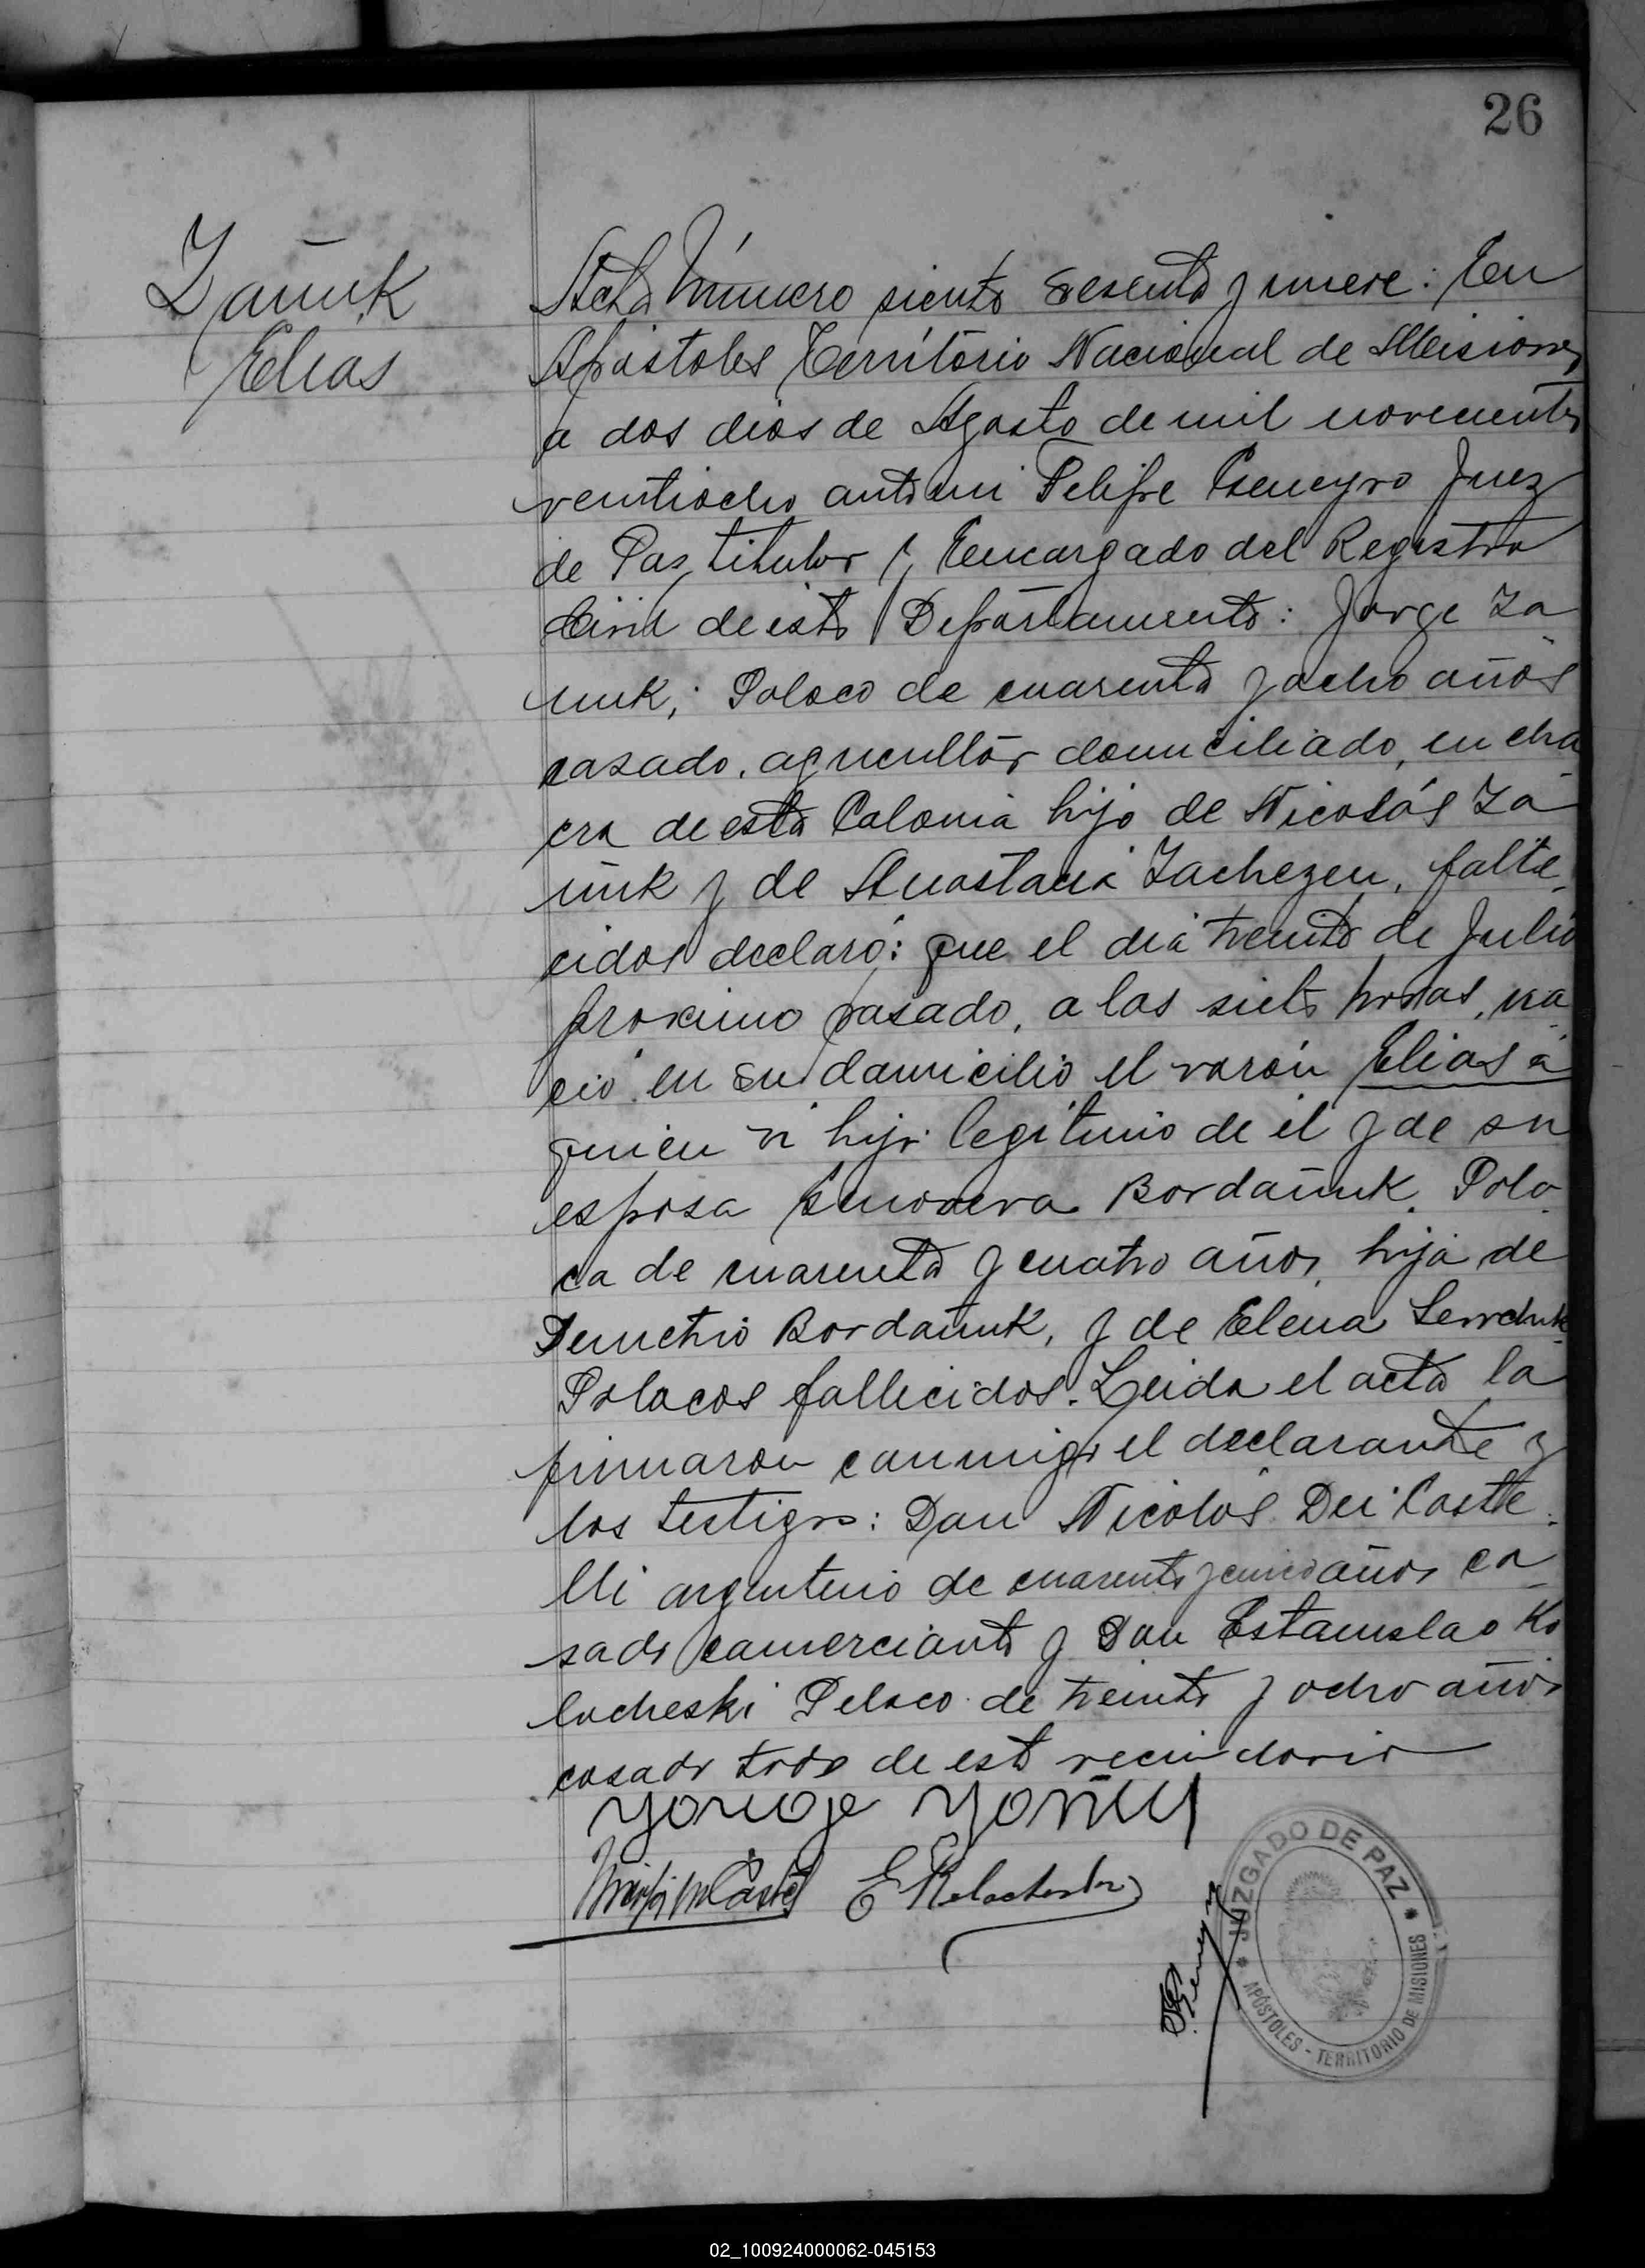 26
Zañuk
Elias
Acta Número siento sesenta y nueve: En
Apóstoles Territorio Nacional de Misiones
a dos dias de Agosto de mil novecientos
ventiocho ante mi Felipe Juez
de Pas titular y Encargado del Registro
Civil de este Departamento: Jorge Za
ñuk; Polaco de cuarenta y ocho años
casado, agricultor domiciliado, en cha
cra de esta Colonia hijo de Nicolás Za
ñuk y de Anastacia Zachezen, falle
cidos declaró: que el dia treinta de Julio
proximo pasado, a las siete horas, na
ció en su domicilio el varón Elias á
quien vi hijo legitimo de él y de su
esposa Bordañuk. Pola
ca de cuarenta y cuatro años, hija de
Demetrio Bordañuk, y de Elena
Polacos fallecidos. Leida el acta la
firmaron conmigo el declarante y
los testigos: Don Nicolás Dei Caste
lli argentino de cuarenta y cinco años ca
sado comerciante y Don Estanislao Ko
locheski Polaco de treinta y ocho años
casado todos de este vecindario
JUZGADO DE PAZ
APÓSTOLES - TERRITORIO DE MISIONES
02_100924000062-045153